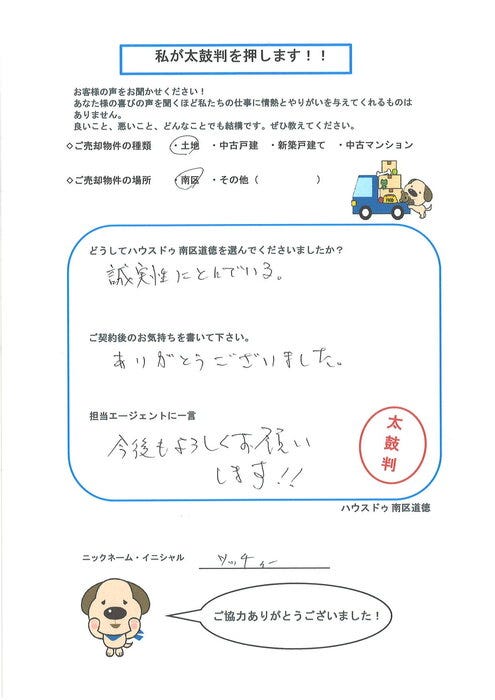 私が太鼓判を押します！！
お客様の声をお聞かせください！
あなた様の喜びの声を聞くほど私たちの仕事に情熱とやりがいを与えてくれるものは
ありません。
良いこと、悪いこと、どんなことでも結構です。ぜひ教えてください。
◇ご売却物件の種類　・土地　・中古戸建　・新築戸建て　・中古マンション
◇ご売却物件の場所　・南区　・その他（　　　　　　）
FOOD
どうしてハウスドゥ 南区道徳を選んでくださいましたか？
誠実性にとんでいる。
ご契約後のお気持ちを書いて下さい。
ありがとうございました。
担当エージェントに一言
今後もよろしくお願い
します!!
太鼓判
ハウスドゥ 南区道徳
ニックネーム・イニシャル　ツッチィー
ご協力ありがとうございました！